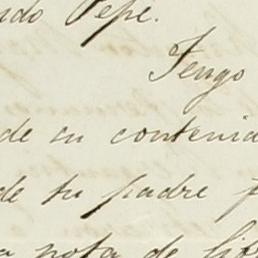 ido Pepe.
Tengo
de su contenid
de tu padre p
a nota de